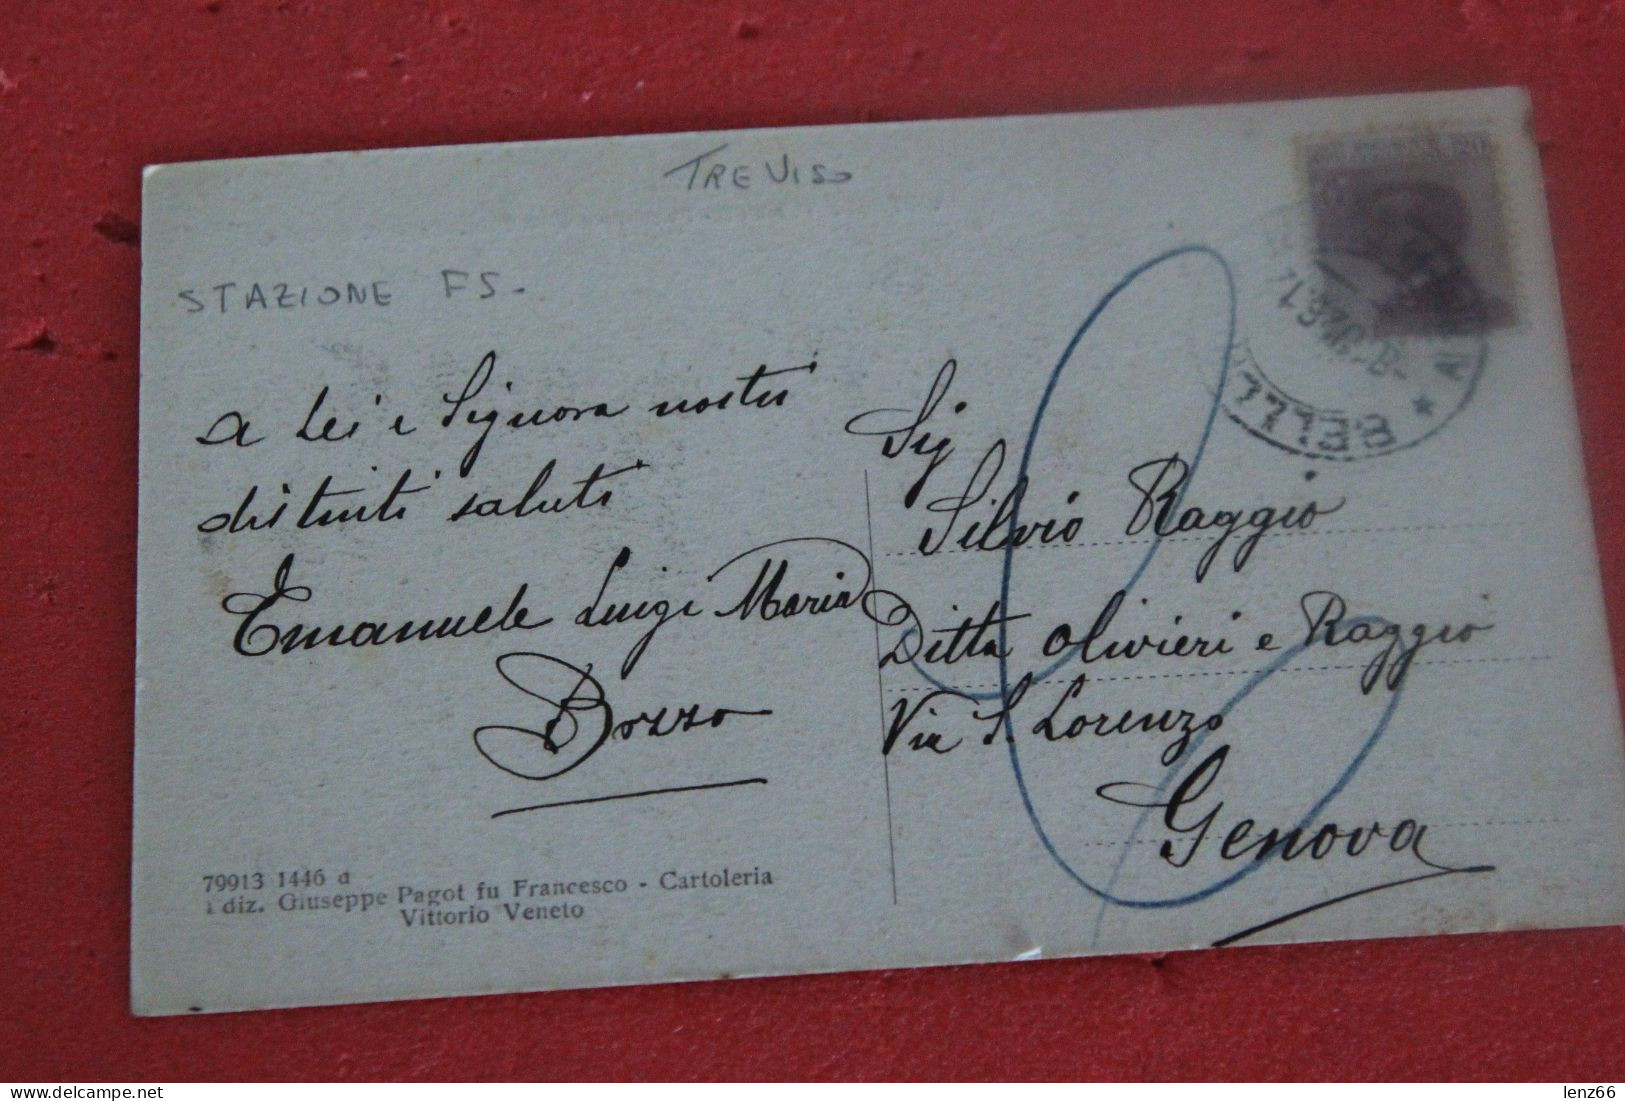 TREVISO
STAZIONE FS.
20
BELLU
a Lei e Signora nostri
distinti saluti
Emanuele Luigi Maria
Bozzo
Sig
Silvio Raggio
Ditta Olivieri e Raggio
Via S. Lorenzo
Genova
79913 1446 a
diz. Giuseppe Pagot fu Francesco - Cartoleria
Vittorio Veneto
delcampe.net
lenz66